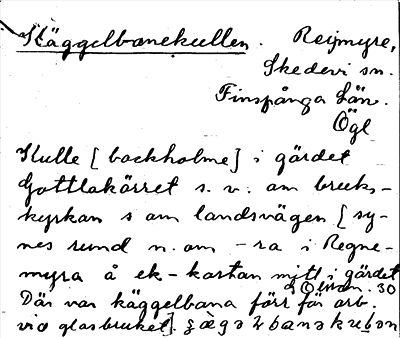 Käggelbanekullen. Reijmyre,
Skedevi sn.
Finspånga Län.
Ögl
Kulle [backholme] i gärdet
Gottlakärret s. v. om bruks-
kyrkan s om landsvägen [sy-
nes rund n. om -ra i Regne-
myra å ek-kartan mitt i gärdet
Där var käggelbana förr för arb.
vid glasbruket].